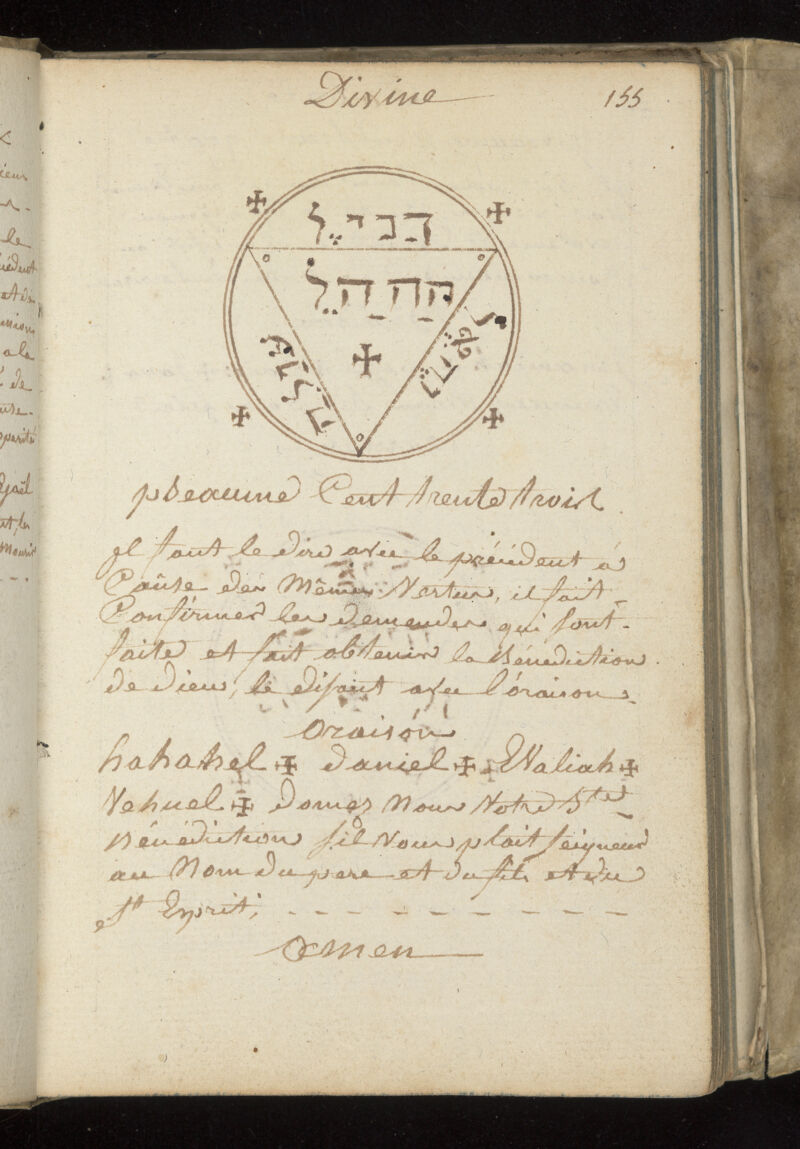 Divine
155
דניאל
הההל
pseaume Cent trente trois
il faut le dire avec le précédent à
Cause des Mêmes Vertus, il fait
Confirmer les demandes qui sont
faite et fait obtenir la Bénédiction
de dieu, le disant avec l'oraison.
oraison
hahahel ✠ daniel ✠ Evaliah ✠
Vehuel ✠ donnez Nous Votre Ste
Bénédiction s'il Vous plait seigneur
au Nom du pere et du fils et du
St Esprit;
Amen